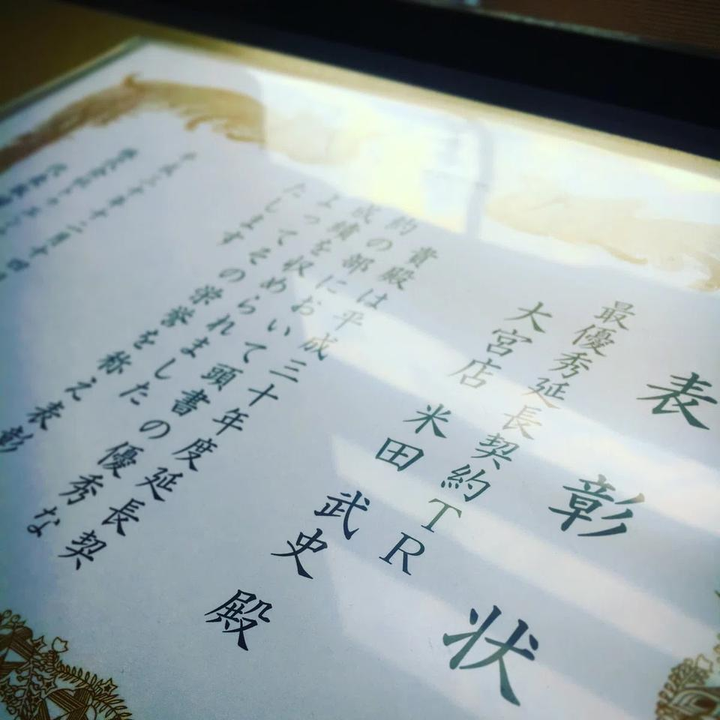 表彰状
最優秀延長契約TR
大宮店 米田 武史 殿
貴殿は平成三十年度延長契
約の部において頭書の優秀な
成績を収められました
よってその栄誉を称え表彰
たします